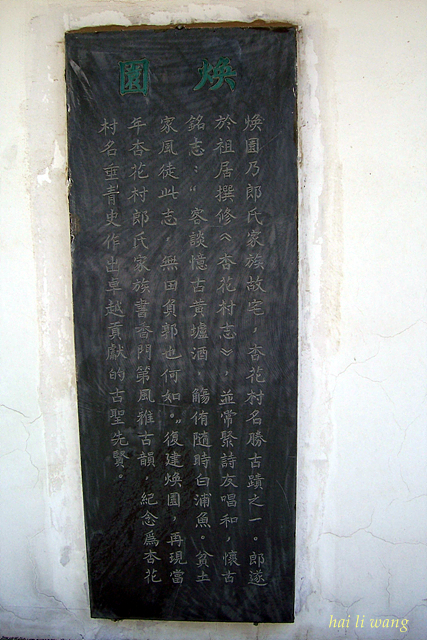 煥園
煥園乃郎氏家族故宅，杏花村名勝古蹟之一。郎遂
於祖居撰修《杏花村志》，並常聚詩友唱和，懷古
銘志：“客談憶古黃壚酒，觴侑隨時白浦魚。貧士
家風徒此志，無田負郭也何如。”復建煥園，再現當
年杏花村郎氏家族書香門第風雅古韻，紀念爲杏花
村名垂青史作出卓越貢獻的古聖先賢。
hai li wang